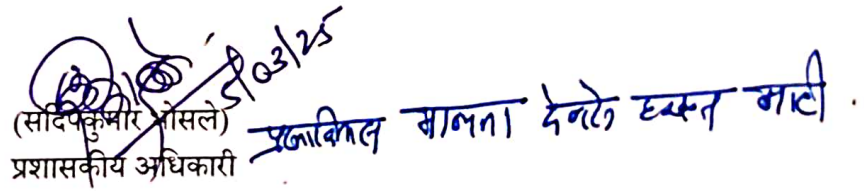 5/03/25
(संदिपकुमार भोसले)
प्रशासकीय अधिकारी
मान्यता देणेस हरकत नाही .